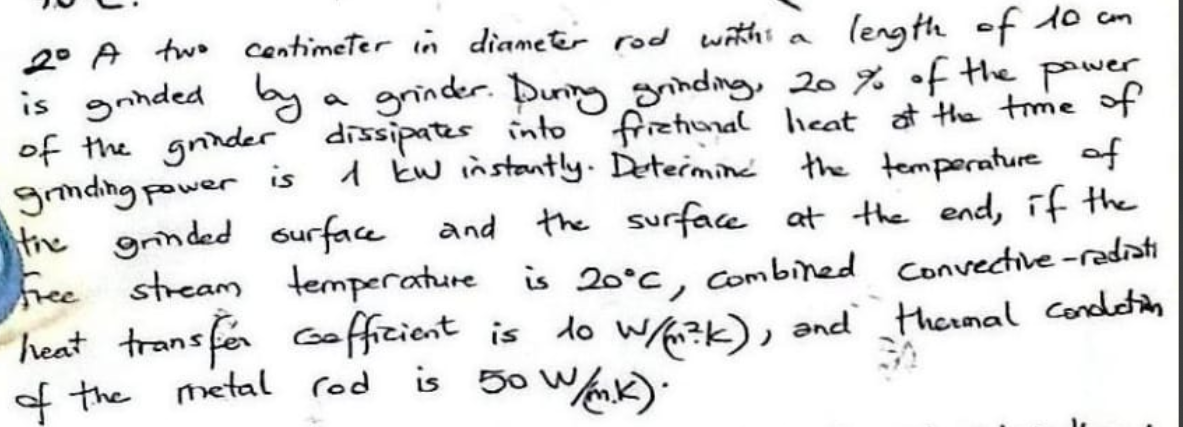 2° A two centimeter in diameter rod with a length of 10 cm
is grinded by a grinder. During grinding, 20 % of the power
of the grinder dissipates into frictional heat at the time of
grinding power is 1 kW instantly. Determine the temperature of
the grinded surface and the surface at the end, if the
free stream temperature is 20°C, combined convective-radiati
heat transfer coefficient is 10 W/(m²K), and thermal conduction
of the metal rod is 50 W/(m.K).